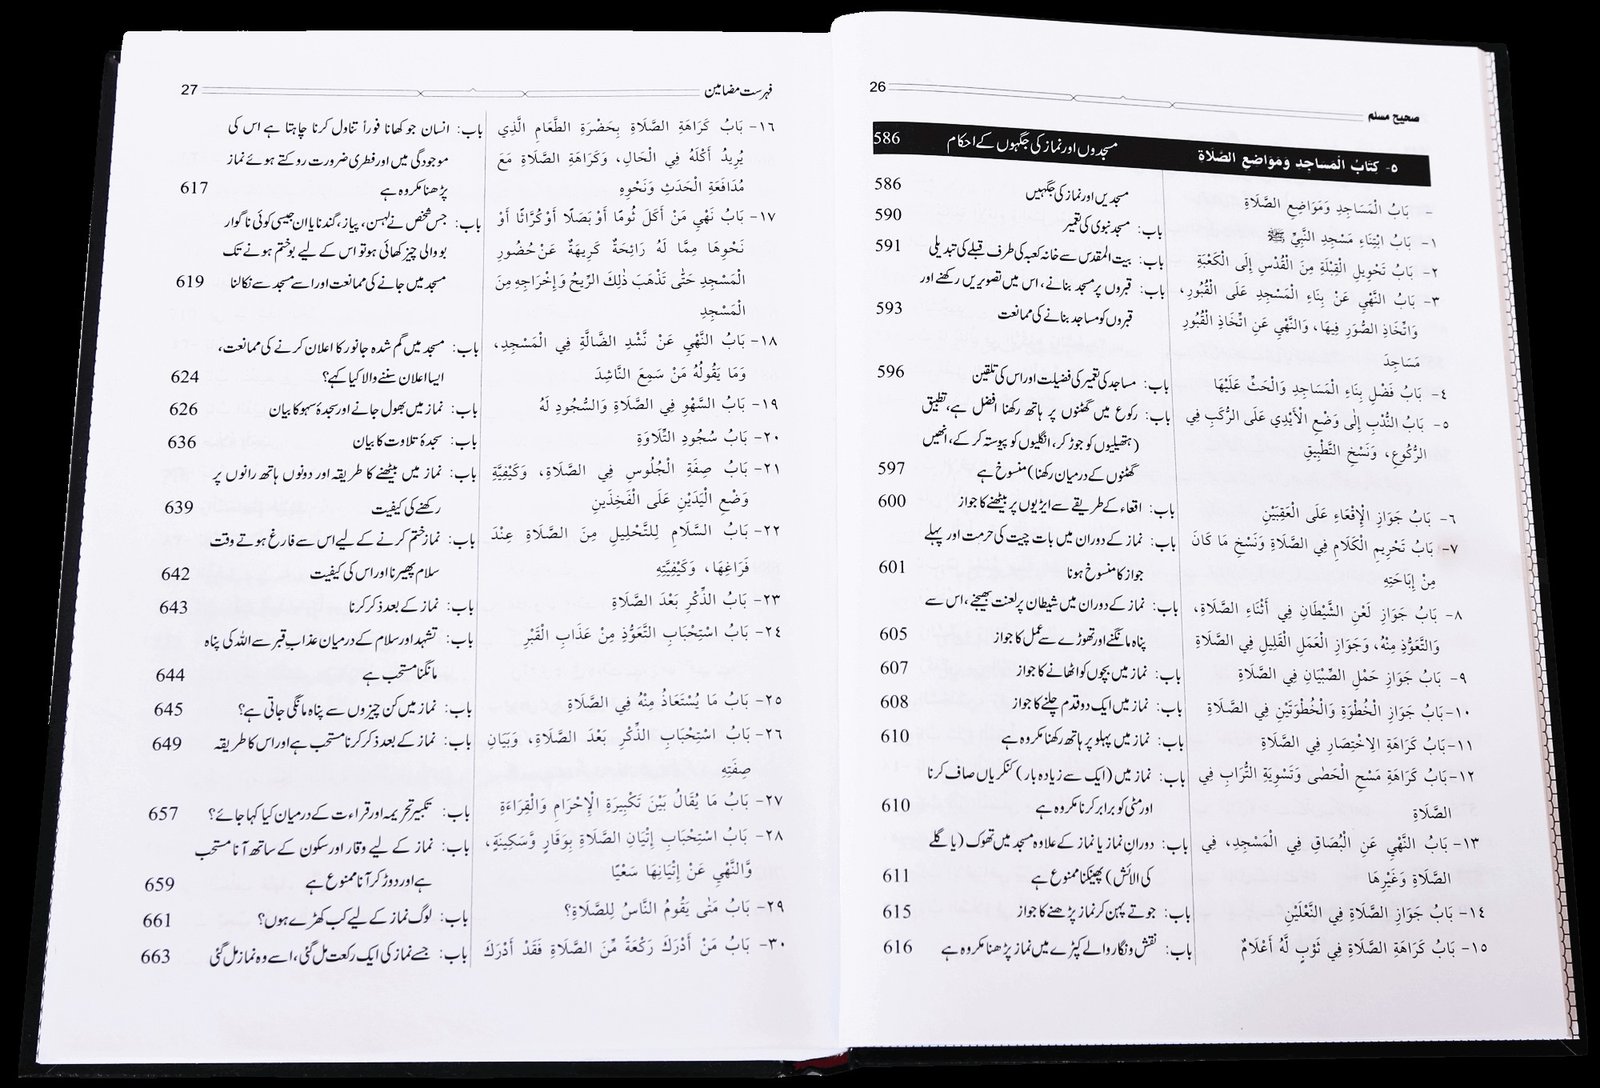 صحیح مسلم 26
٥- كِتَابُ الْمَسَاجِدِ وَمَوَاضِعِ الصَّلَاةِ مسجدوں اور نماز کی جگہوں کے احکام 586
- بَابُ الْمَسَاجِدِ وَمَوَاضِعِ الصَّلَاةِ مسجدیں اور نماز کی جگہیں 586
١- بَابُ ابْتِنَاءِ مَسْجِدِ النَّبِيِّ ﷺ باب: مسجد نبوی کی تعمیر 590
٢- بَابُ تَحْوِيلِ الْقِبْلَةِ مِنَ الْقُدْسِ إِلَى الْكَعْبَةِ باب: بیت المقدس سے خانہ کعبہ کی طرف قبلے کی تبدیلی 591
٣- بَابُ النَّهْيِ عَنْ بِنَاءِ الْمَسْجِدِ عَلَى الْقُبُورِ، باب: قبروں پر مسجد بنانے، اس میں تصویریں رکھنے اور
وَاتِّخَاذِ الصُّوَرِ فِيهَا، وَالنَّهْيِ عَنِ اتِّخَاذِ الْقُبُورِ قبروں کو مساجد بنانے کی ممانعت 593
مَسَاجِدَ
٤- بَابُ فَضْلِ بِنَاءِ الْمَسَاجِدِ وَالْحَثِّ عَلَيْهَا باب: مساجد کی تعمیر کی فضیلت اور اس کی تلقین 596
٥- بَابُ النَّدْبِ إِلَى وَضْعِ الْأَيْدِي عَلَى الرُّكَبِ فِي باب: رکوع میں گھٹنوں پر ہاتھ رکھنا افضل ہے، تطبیق
الرُّكُوعِ، وَنَسْخِ التَّطْبِيقِ (ہتھیلیوں کو جوڑ کر، انگلیوں کو پیوستہ کر کے، انھیں
گھٹنوں کے درمیان رکھنا) منسوخ ہے 597
٦- بَابُ جَوَازِ الْإِقْعَاءِ عَلَى الْعَقِبَيْنِ باب: اقعاء کے طریقے سے ایڑیوں پر بیٹھنے کا جواز 600
٧- بَابُ تَحْرِيمِ الْكَلَامِ فِي الصَّلَاةِ وَنَسْخِ مَا كَانَ باب: نماز کے دوران میں بات چیت کی حرمت اور پہلے
مِنْ إِبَاحَتِهِ جواز کا منسوخ ہونا 601
٨- بَابُ جَوَازِ لَعْنِ الشَّيْطَانِ فِي أَثْنَاءِ الصَّلَاةِ، باب: نماز کے دوران میں شیطان پر لعنت بھیجنے، اس سے
وَالتَّعَوُّذِ مِنْهُ، وَجَوَازِ الْعَمَلِ الْقَلِيلِ فِي الصَّلَاةِ پناہ مانگنے اور تھوڑے سے عمل کا جواز 605
٩- بَابُ جَوَازِ حَمْلِ الصِّبْيَانِ فِي الصَّلَاةِ باب: نماز میں بچوں کو اٹھانے کا جواز 607
١٠- بَابُ جَوَازِ الْخُطْوَةِ وَالْخُطْوَتَيْنِ فِي الصَّلَاةِ باب: نماز میں ایک دو قدم چلنے کا جواز 608
١١- بَابُ كَرَاهَةِ الِاخْتِصَارِ فِي الصَّلَاةِ باب: نماز میں پہلو پر ہاتھ رکھنا مکروہ ہے 610
١٢- بَابُ كَرَاهَةِ مَسْحِ الْحَصٰى وَتَسْوِيَةِ التُّرَابِ فِي باب: نماز میں (ایک سے زیادہ بار) کنکریاں صاف کرنا
الصَّلَاةِ اور مٹی کو برابر کرنا مکروہ ہے 610
١٣- بَابُ النَّهْيِ عَنِ الْبُصَاقِ فِي الْمَسْجِدِ، فِي باب: دورانِ نماز یا نماز کے علاوہ مسجد میں تھوک (یا گلے
الصَّلَاةِ وَغَيْرِهَا کی الائش) پھینکنا ممنوع ہے 611
١٤- بَابُ جَوَازِ الصَّلَاةِ فِي النَّعْلَيْنِ باب: جوتے پہن کر نماز پڑھنے کا جواز 615
١٥- بَابُ كَرَاهَةِ الصَّلَاةِ فِي ثَوْبٍ لَّهُ أَعْلَامٌ باب: نقش و نگار والے کپڑے میں نماز پڑھنا مکروہ ہے 616
فہرست مضامین 27
١٦- بَابُ كَرَاهَةِ الصَّلَاةِ بِحَضْرَةِ الطَّعَامِ الَّذِي باب: انسان جو کھانا فوراً تناول کرنا چاہتا ہے اس کی
يُرِيدُ أَكْلَهُ فِي الْحَالِ، وَكَرَاهَةِ الصَّلَاةِ مَعَ موجودگی میں اور فطری ضرورت روکتے ہوئے نماز
مُدَافَعَةِ الْحَدَثِ وَنَحْوِهِ پڑھنا مکروہ ہے 617
١٧- بَابُ نَهْيِ مَنْ أَكَلَ ثُومًا أَوْ بَصَلًا أَوْ كُرَّاثًا أَوْ باب: جس شخص نے لہسن، پیاز، گندنا یا ان جیسی کوئی ناگوار
نَحْوِهَا مِمَّا لَهُ رَائِحَةٌ كَرِيهَةٌ عَنْ حُضُورِ بو والی چیز کھائی ہو تو اس کے لیے بو ختم ہونے تک
الْمَسْجِدِ حَتّٰى تَذْهَبَ ذٰلِكَ الرِّيحُ وَإِخْرَاجِهِ مِنَ مسجد میں جانے کی ممانعت اور اسے مسجد سے نکالنا 619
الْمَسْجِدِ
١٨- بَابُ النَّهْيِ عَنْ نَشْدِ الضَّالَّةِ فِي الْمَسْجِدِ، باب: مسجد میں گم شدہ جانور کا اعلان کرنے کی ممانعت،
وَمَا يَقُولُهُ مَنْ سَمِعَ النَّاشِدَ ایسا اعلان سننے والا کیا کہے؟ 624
١٩- بَابُ السَّهْوِ فِي الصَّلَاةِ وَالسُّجُودِ لَهُ باب: نماز میں بھول جانے اور سجدۂ سہو کا بیان 626
٢٠- بَابُ سُجُودِ التِّلَاوَةِ باب: سجدۂ تلاوت کا بیان 636
٢١- بَابُ صِفَةِ الْجُلُوسِ فِي الصَّلَاةِ، وَكَيْفِيَّةِ باب: نماز میں بیٹھنے کا طریقہ اور دونوں ہاتھ رانوں پر
وَضْعِ الْيَدَيْنِ عَلَى الْفَخِذَيْنِ رکھنے کی کیفیت 639
٢٢- بَابُ السَّلَامِ لِلتَّحْلِيلِ مِنَ الصَّلَاةِ عِنْدَ باب: نماز ختم کرنے کے لیے اس سے فارغ ہوتے وقت
فَرَاغِهَا، وَكَيْفِيَّتِهِ سلام پھیرنا اور اس کی کیفیت 642
٢٣- بَابُ الذِّكْرِ بَعْدَ الصَّلَاةِ باب: نماز کے بعد ذکر کرنا 643
٢٤- بَابُ اسْتِحْبَابِ التَّعَوُّذِ مِنْ عَذَابِ الْقَبْرِ باب: تشہد اور سلام کے درمیان عذاب قبر سے اللہ کی پناہ
مانگنا مستحب ہے 644
٢٥- بَابُ مَا يُسْتَعَاذُ مِنْهُ فِي الصَّلَاةِ باب: نماز میں کن چیزوں سے پناہ مانگی جاتی ہے؟ 645
٢٦- بَابُ اسْتِحْبَابِ الذِّكْرِ بَعْدَ الصَّلَاةِ، وَبَيَانِ باب: نماز کے بعد ذکر کرنا مستحب ہے اور اس کا طریقہ 649
صِفَتِهِ
٢٧- بَابُ مَا يُقَالُ بَيْنَ تَكْبِيرَةِ الْإِحْرَامِ وَالْقِرَاءَةِ باب: تکبیر تحریمہ اور قراءت کے درمیان کیا کہا جائے؟ 657
٢٨- بَابُ اسْتِحْبَابِ إِتْيَانِ الصَّلَاةِ بِوَقَارٍ وَّسَكِينَةٍ، باب: نماز کے لیے وقار اور سکون کے ساتھ آنا مستحب
وَّالنَّهْيِ عَنْ إِتْيَانِهَا سَعْيًا ہے اور دوڑ کر آنا ممنوع ہے 659
٢٩- بَابُ مَتٰى يَقُومُ النَّاسُ لِلصَّلَاةِ؟ باب: لوگ نماز کے لیے کب کھڑے ہوں؟ 661
٣٠- بَابُ مَنْ أَدْرَكَ رَكْعَةً مِّنَ الصَّلَاةِ فَقَدْ أَدْرَكَ باب: جسے نماز کی ایک رکعت مل گئی، اسے وہ نماز مل گئی 663